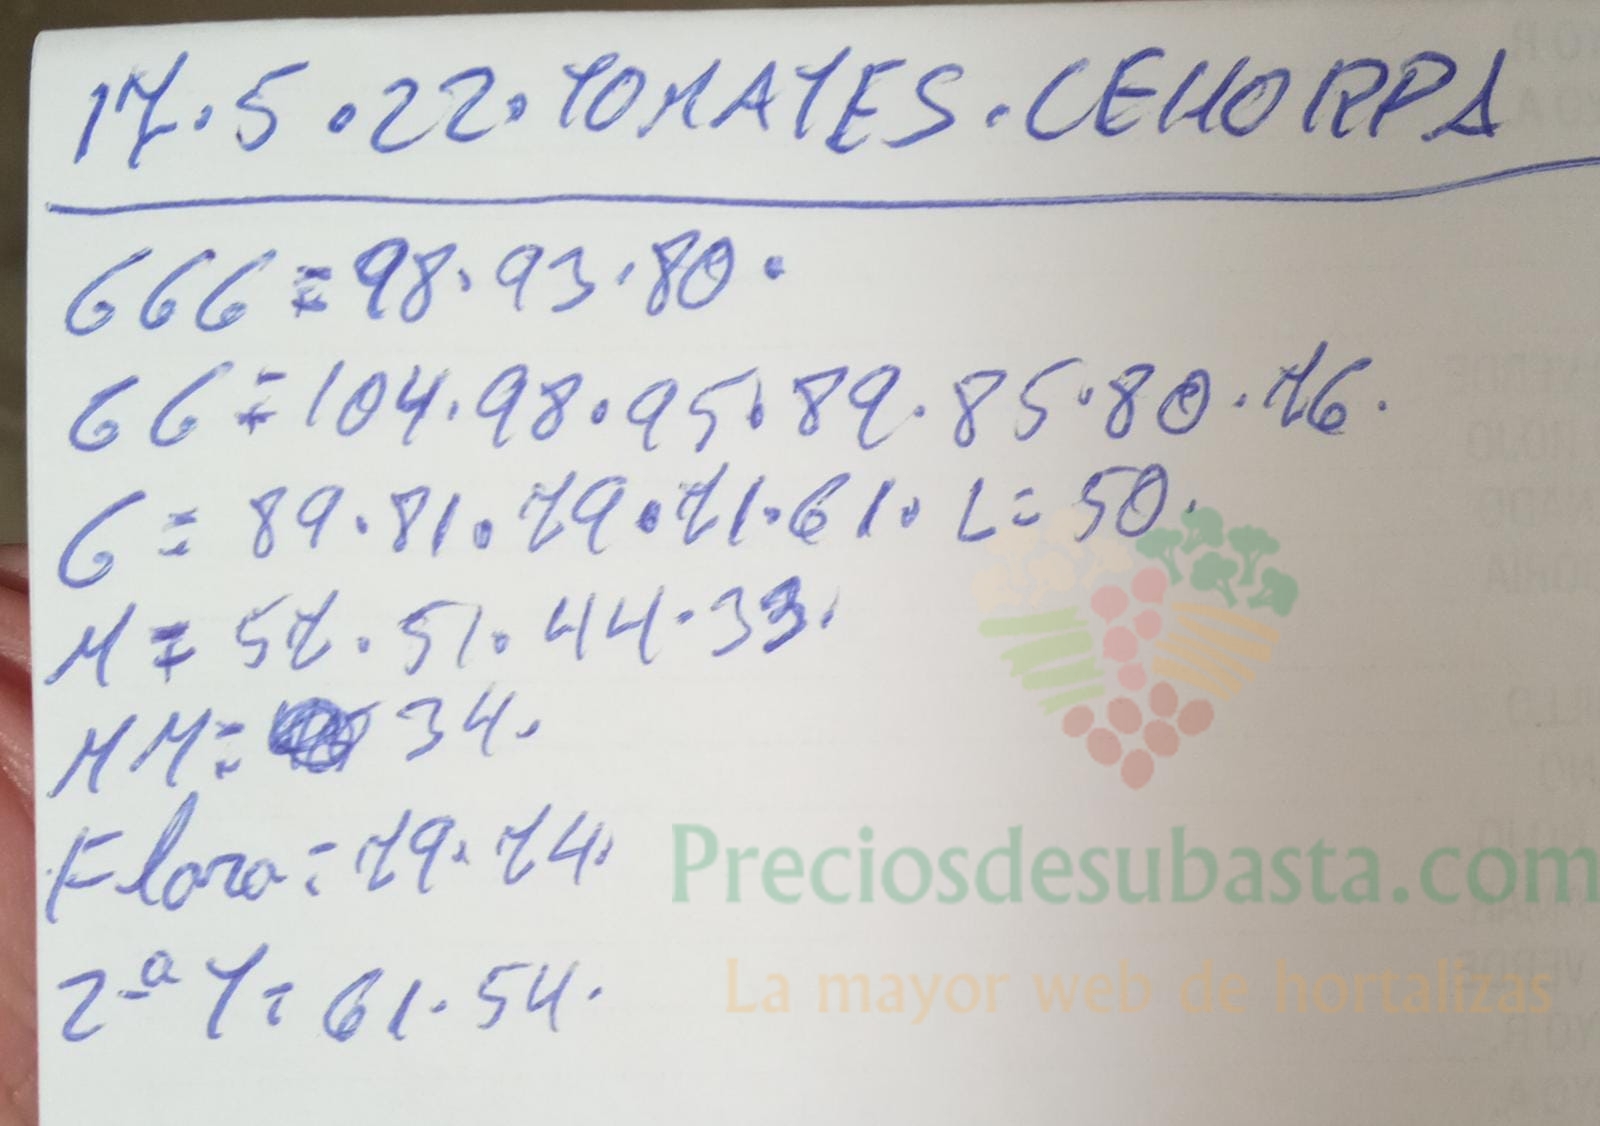 17.5.22.TOMATES.CEHORPA
GGG=98.93.80.
GG=104.98.95.89.85.80.76.
G=89.81.79.71.61. L=50.
M=57.51.44.33.
MM= 34.
Floro=79.74.
2ª T=61.54.
Preciosdesubasta.com
La mayor web de hortalizas